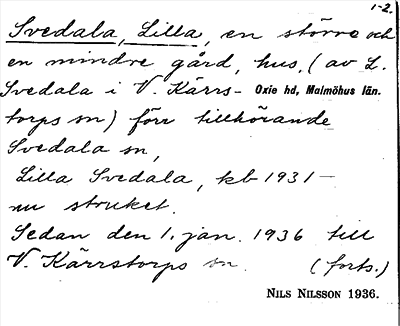 1-2.
Svedala, Lilla, en större och
en mindre gård, hus, (av L.
Svedala i V. Kärrs- Oxie hd, Malmöhus län.
torps sn) förr tillhörande
Svedala sn,
Lilla Svedala, kb 1931-
nu struket.
Sedan den 1. jan. 1936 till
V. Kärrstorps sn. (forts.)
NILS NILSSON 1936.